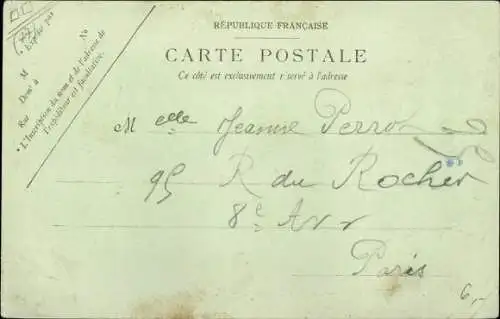 RÉPUBLIQUE FRANÇAISE
CARTE POSTALE
Ce côté est exclusivement r servé à l'adresse
M
No
Rue
Dem' à
* L'Inscription du nom et de l'adresse de
l'expéditeur est facultative.
M elle Jeanne Perro
95 R du Rocher
8e Arr
Paris
6,-